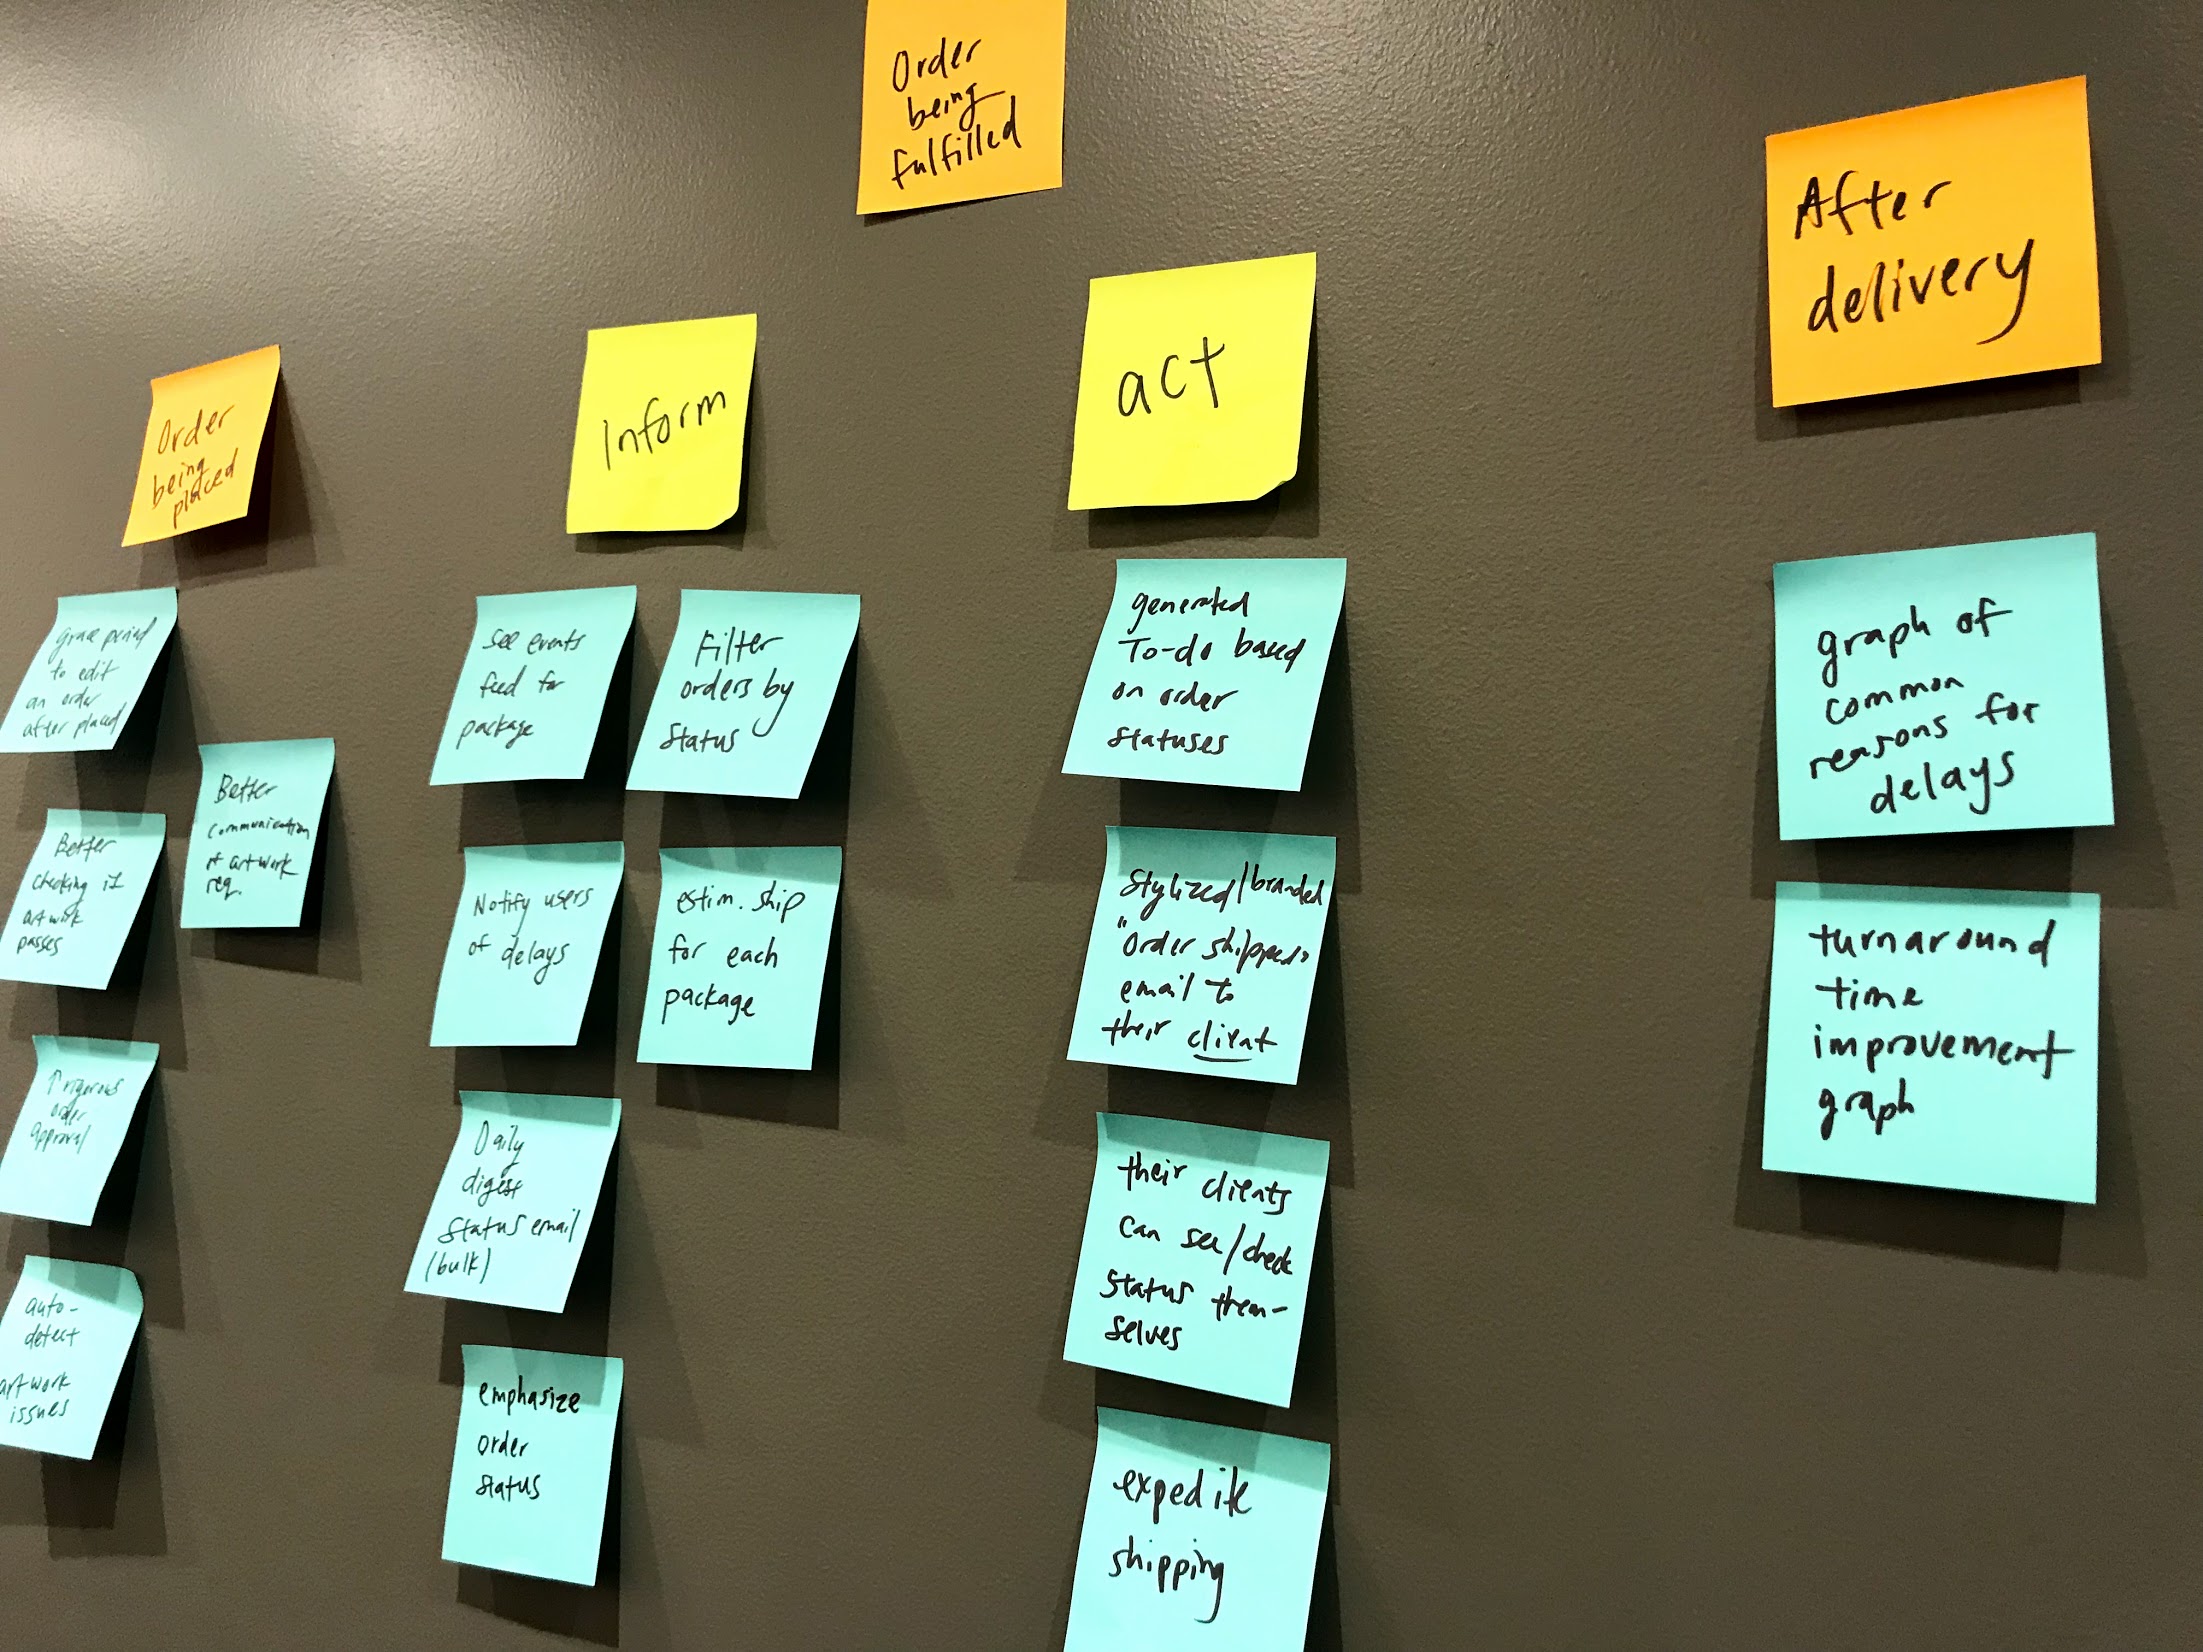 Order
being
fulfilled
After
delivery
Order
being
placed
Inform
act
Grace period
to edit
an order
after placed
Better
checking if
artwork
passes
Better
communication
of artwork
req.
↑ rigorous
order
approval
auto-
detect
artwork
issues
See events
feed for
package
Filter
orders by
status
Notify users
of delays
estim. ship
for each
package
Daily
digest
status email
(bulk)
emphasize
order
status
generated
To-do based
on order
statuses
Stylized/branded
"Order shipped"
email to
their client
their clients
can see/check
status them-
selves
expedite
shipping
graph of
common
reasons for
delays
turnaround
time
improvement
graph